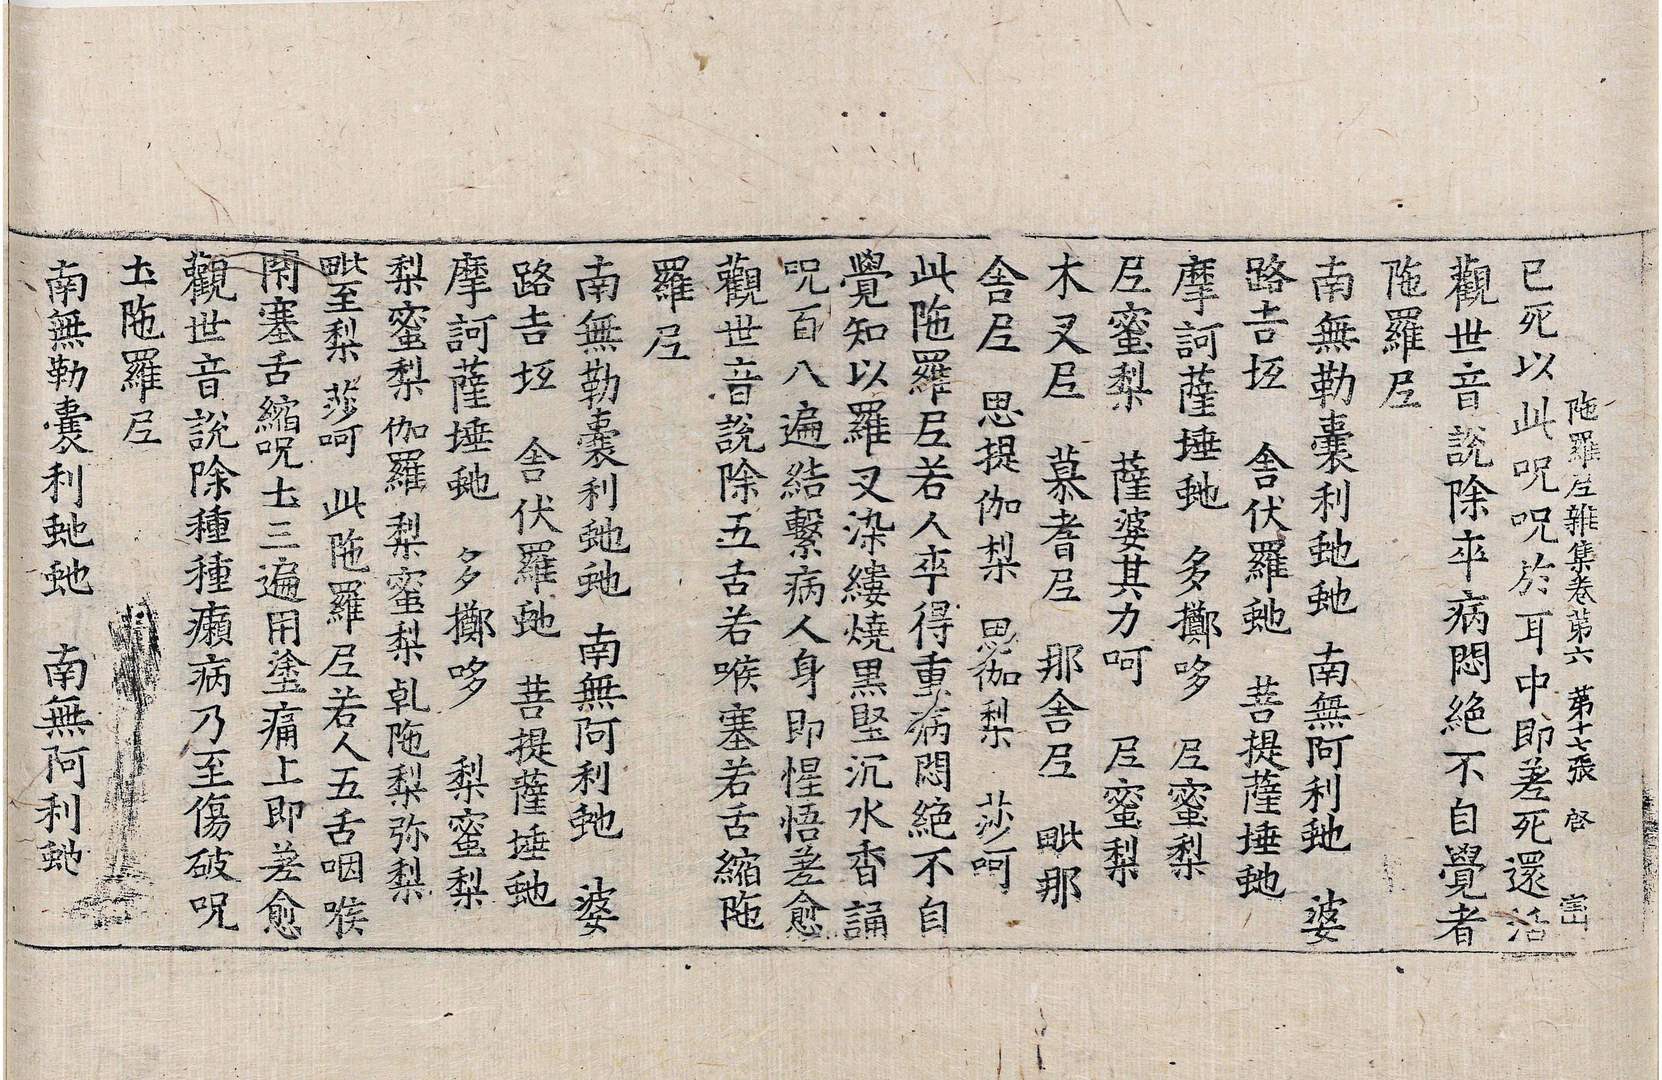 陁羅尼雜集卷第六 第十七張 啓
已死以此呪呪於耳中即差死還活
觀世音說除卒病悶絶不自覺者
陁羅尼
南無勒囊利虵虵 南無阿利虵 婆
路吉坘 舍伏羅虵 菩提薩埵虵
摩訶薩埵虵 多擲哆 尼蜜梨
尼蜜梨 薩婆其力呵 尼蜜梨
木叉尼 慕耆尼 那舍尼 毗那
舍尼 思提伽梨 思伽梨 莎呵
此陁羅尼若人卒得重病悶絶不自
覺知以羅叉染縷燒黒堅沉水香誦
呪百八遍結繫病人身即惺悟差愈
觀世音說除五舌若喉塞若舌縮陁
羅尼
南無勒囊利虵虵 南無阿利虵 婆
路吉坘 舍伏羅虵 菩提薩埵虵
摩訶薩埵虵 多擲哆 梨蜜梨
梨蜜梨 伽羅梨蜜梨 乹陁梨 弥梨
毗至梨 莎呵 此陁羅尼若人五舌咽喉
閇塞舌縮呪土三遍用塗痛上即差愈
觀世音說除種種癩病乃至傷破呪
土陁羅尼
南無勒囊利虵虵 南無阿利虵